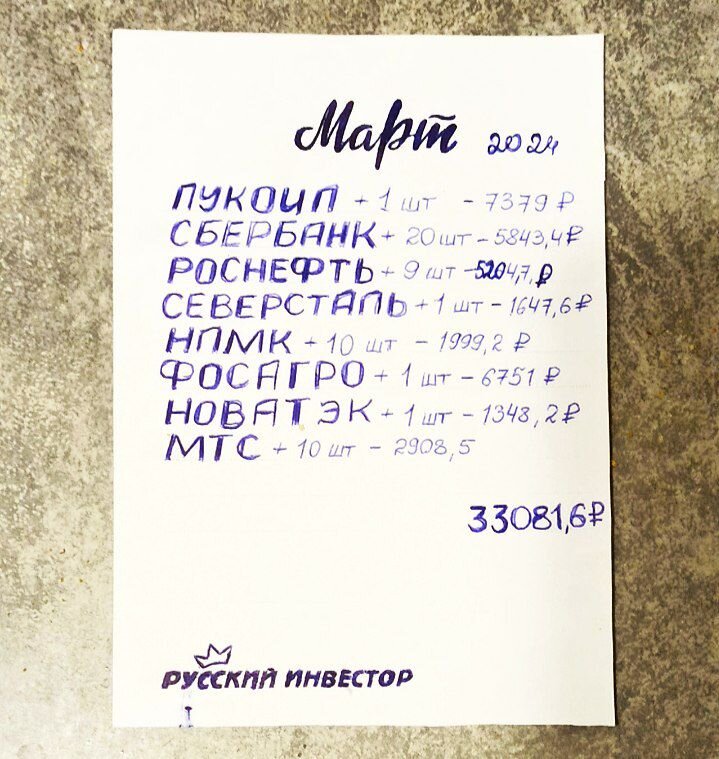 Март 2024
ЛУКОИЛ + 1 шт - 7379 ₽
СБЕРБАНК + 20 шт - 5843,4 ₽
РОСНЕФТЬ + 9 шт - 5204,7 ₽
СЕВЕРСТАЛЬ + 1 шт - 1647,6 ₽
НЛМК + 10 шт - 1999,2 ₽
ФОСАГРО + 1 шт - 6751 ₽
НОВАТЭК + 1 шт - 1348,2 ₽
МТС + 10 шт - 2908,5
33081,6 ₽
РУССКИЙ ИНВЕСТОР